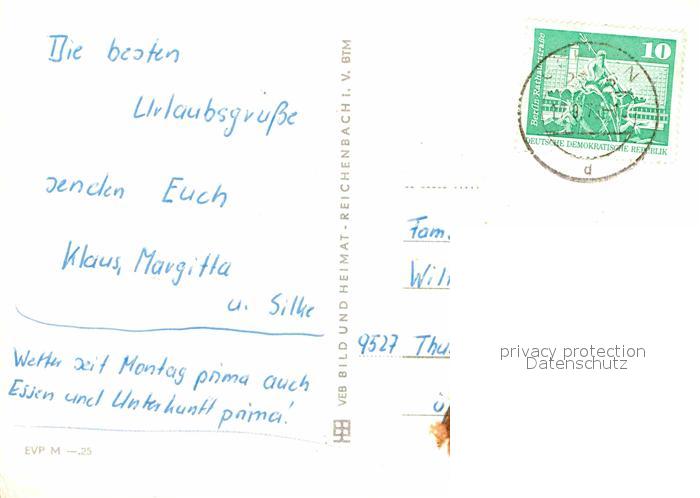 Die besten
Urlaubsgrüße
senden Euch
Klaus, Margitta
u. Silke
Wetter seit Montag prima auch
Essen und Unterkunft prima!
EVP M —.25
VEB BILD UND HEIMAT - REICHENBACH i. V. BTM
10
Berlin Rathausstraße
DEUTSCHE DEMOKRATISCHE REPUBLIK
d
Fam.
Wil
9527 Thu
privacy protection
Datenschutz